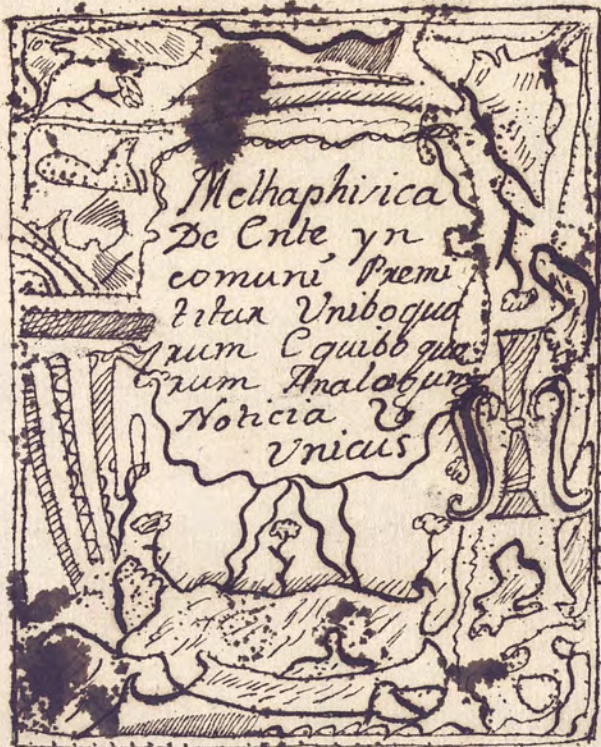 Methaphisica
De Ente yn
comuni Premi
titur Uniboquo
rum Equiboquo
rum Analogum
Noticia &
Unicus